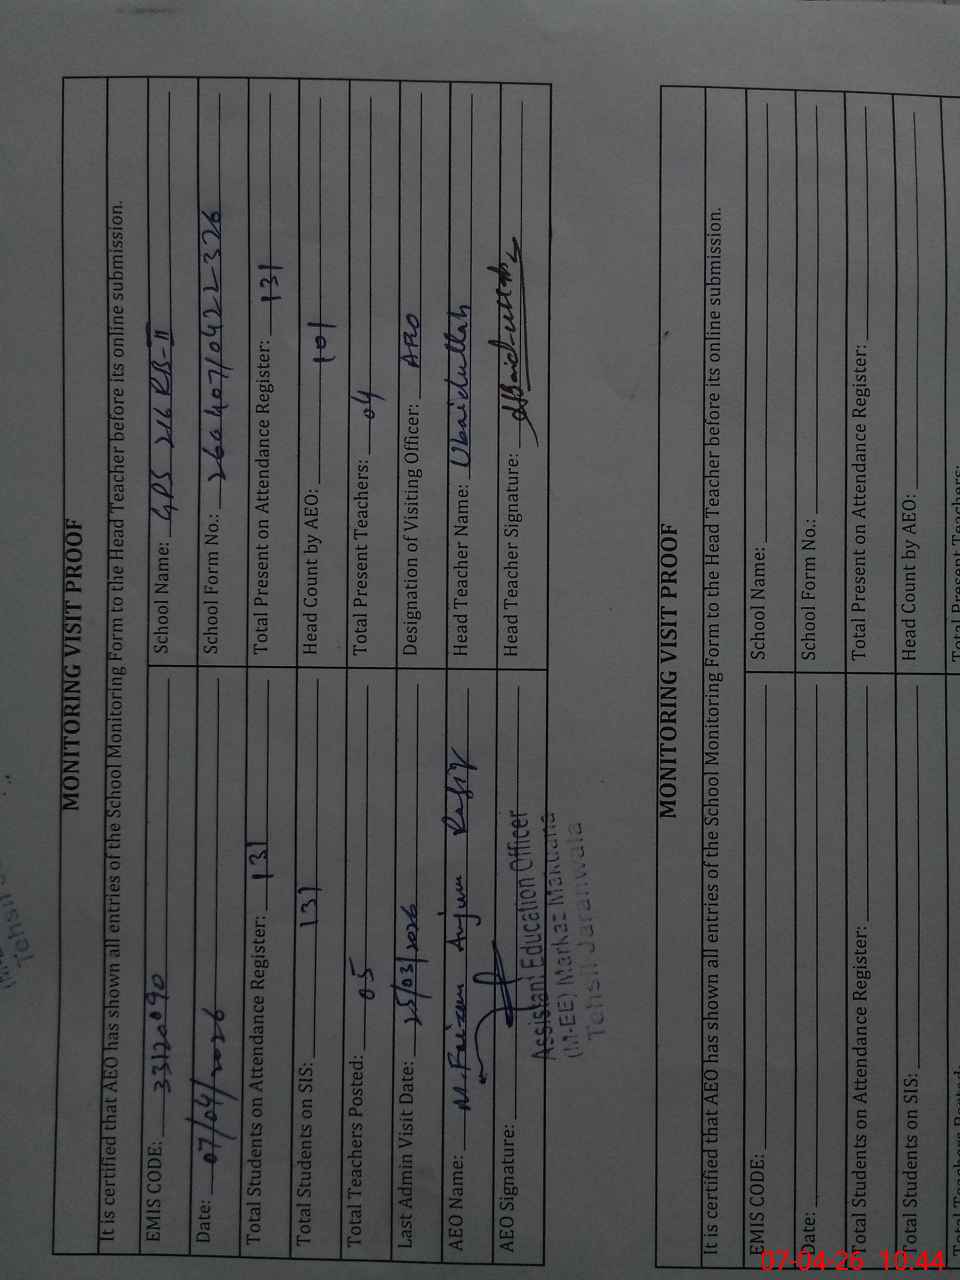 MONITORING VISIT PROOF
It is certified that AEO has shown all entries of the School Monitoring Form to the Head Teacher before its online submission.
EMIS CODE: 33120090 School Name: GPS 216 RB-II
Date: 07/04/2026 School Form No.: 260407/0422326
Total Students on Attendance Register: 131 Total Present on Attendance Register: 131
Total Students on SIS: 131 Head Count by AEO: 101
Total Teachers Posted: 05 Total Present Teachers: 04
Last Admin Visit Date: 25/03/2026 Designation of Visiting Officer: AEO
AEO Name: M. Faizan Anjum Rafiq Head Teacher Name: Ubaidullah
AEO Signature: Head Teacher Signature: Ubaid-ullah
Assistant Education Officer
(M-EE) Markaz Makuana
Tehsil Jaranwala
Tehsil
MONITORING VISIT PROOF
It is certified that AEO has shown all entries of the School Monitoring Form to the Head Teacher before its online submission.
EMIS CODE: School Name:
Date: School Form No.:
Total Students on Attendance Register: Total Present on Attendance Register:
Total Students on SIS: Head Count by AEO:
Total Teachers Posted: Total Present Teachers:
07-04-26 10:44